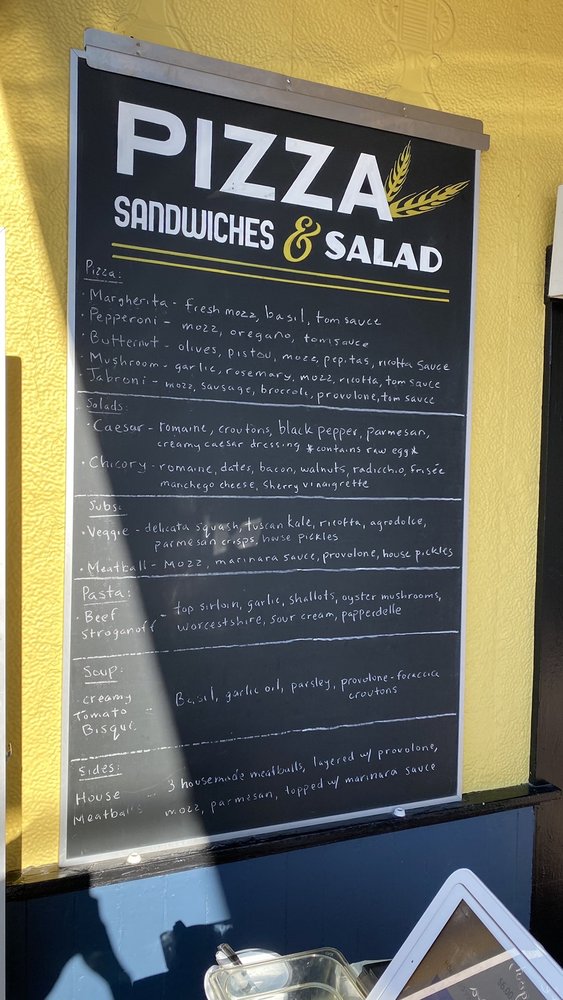 PIZZA
SANDWICHES & SALAD
Pizza:
· Margherita - fresh mozz, basil, tom sauce
· Pepperoni - mozz, oregano, tom sauce
· Butternut - olives, pistou, mozz, pepitas, ricotta sauce
· Mushroom - garlic, rosemary, mozz, ricotta, tom sauce
· Jabroni - mozz, sausage, broccoli, provolone, tom sauce
Salads:
· Caesar - romaine, croutons, black pepper, parmesan,
creamy caesar dressing *contains raw egg*
· Chicory - romaine, dates, bacon, walnuts, radicchio, frisée
manchego cheese, sherry vinaigrette
Subs:
· Veggie - delicata squash, tuscan kale, ricotta, agrodolce,
parmesan crisps, house pickles
· Meatball - mozz, marinara sauce, provolone, house pickles
Pasta:
· Beef Stroganoff - top sirloin, garlic, shallots, oyster mushrooms,
worcestshire, sour cream, papperdelle
Soup:
Creamy Tomato Bisque - Basil, garlic oil, parsley, provolone-foraccia
croutons
Sides:
House Meatballs - 3 housemade meatballs, layered w/ provolone,
mozz, parmesan, topped w/ marinara sauce